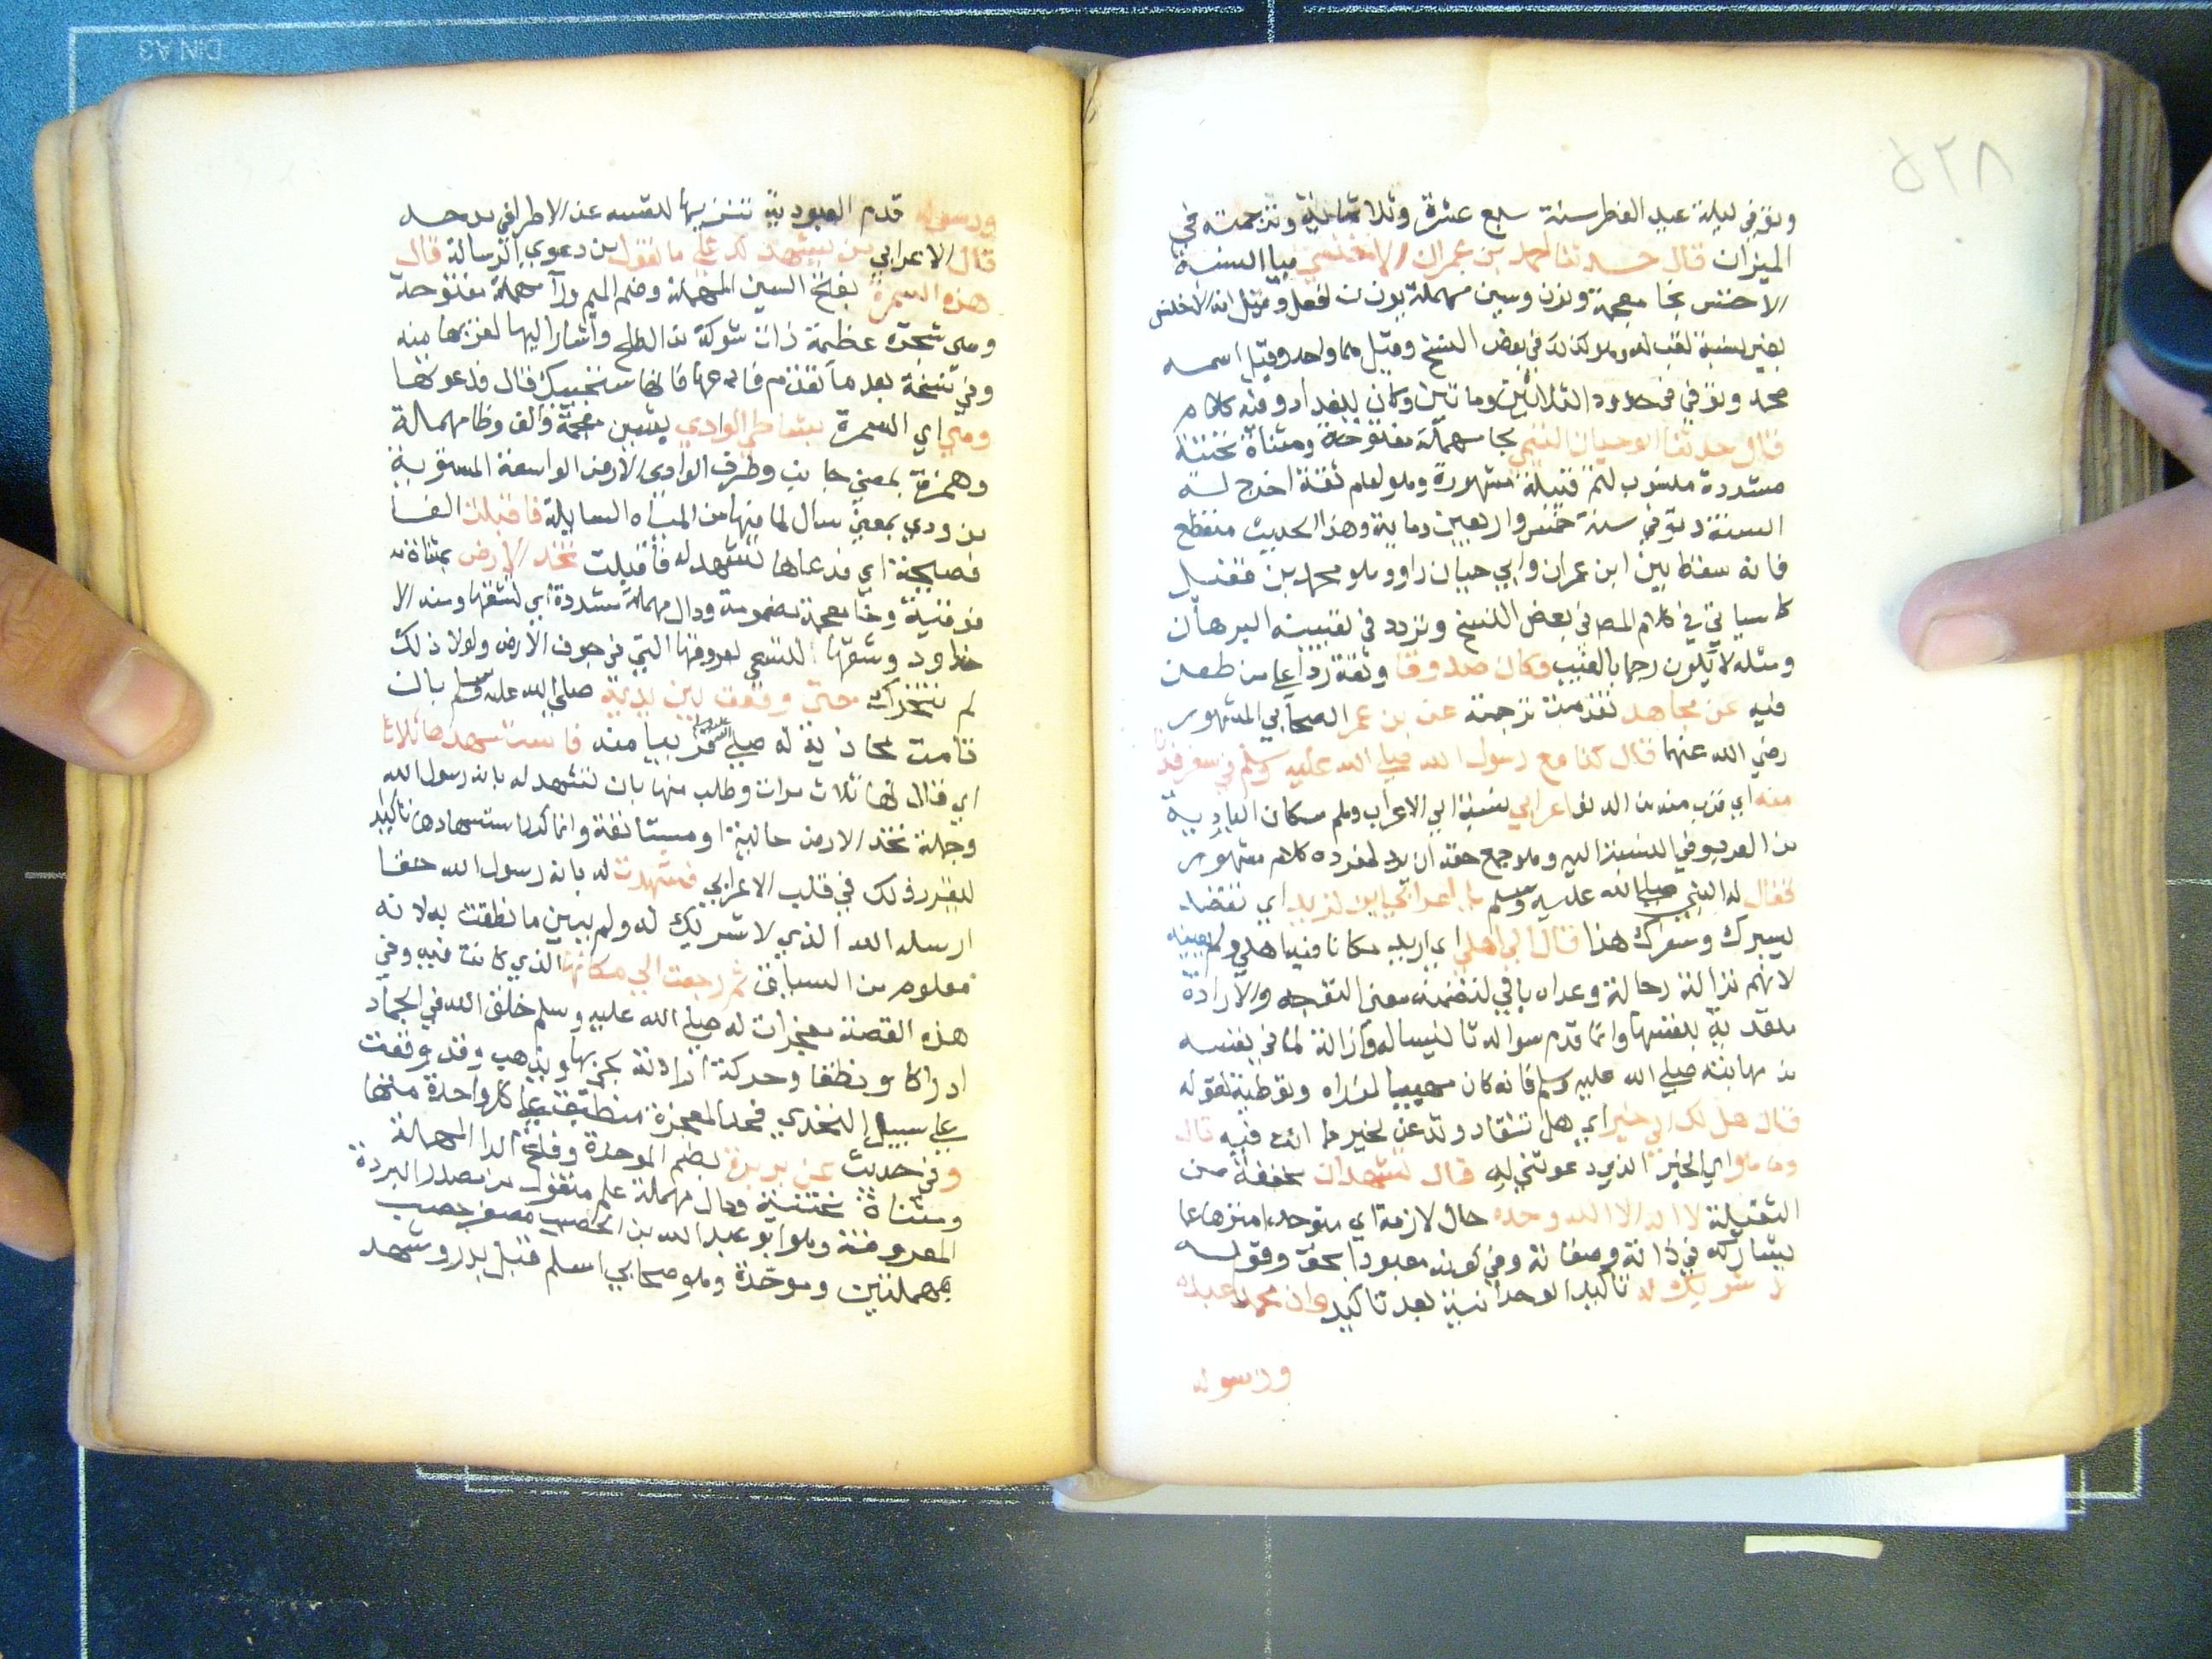 ٥٢٨
وتوفي ليلة عيد الفطر سنة سبع عشرة وثلاثمائة وترجمته في
الميزان قال حدثنا احمد بن عمران الاخنسي بياء النسبة
الاخنس بخا معجمة ونون وسين مهملة بوزن افعل وقيل انه الاخنس
بغير نسبة لقب له وهو كذلك في بعض النسخ وقيل هما واحد وقيل اسمه
محمد وتوفي في حدود الثلاثين ومايتين وكان ببغداد وفيه كلام
قال حدثنا ابو حيان التيمي بحا مهملة مفتوحة ومثناة تحتية
مشددة منسوب لتيم قبيلة مشهورة وهو امام ثقة اخرج له
الستة وتوفي سنة خمس واربعين وماية وهذا الحديث منقطع
فانه سقط بين ابن عمران وابي حيان راو وهو محمد بن فضيل
كما سياتي في كلام المص في بعض النسخ وتردد في تعيينه البرهان
ومثله لا يكون رجما بالغيب وكان صدوقا وثقة ردا على من طعن
فيه عن مجاهد تقدمت ترجمته عن بن عمر الصحابي المشهور
رضي الله عنهما قال كنا مع رسول الله صلى الله عليه وسلم في سفر فدنا
منه اي قرب منه من الدنو اعرابي نسبة الى الاعراب وهم سكان البادية
من العرب وفي النسبة اليه وهو جمع حقه ان يرد لمفرده كلام مشهور
فقال له النبي صلى الله عليه وسلم يا اعرابي اين تريد اي تقصد
بسيرك وسفرك هذا قال الى اهلي اي اريد مكانا فيه اهلي ولم يعينه
لانهم نزالة رحالة وعداه بالى لتضمنه معنى التوجه والارادة
متعدية بنفسها وانما قدم سواله تانيسا له وازالة لما في نفسه
من مهابته صلى الله عليه وسلم فانه كان مهيبا لمن راه وتوطية لقوله
قال هل لك الى خير اي هل تنقاد وتذعن لخير مما انت فيه قال
وما هو اي الخير الذي دعوتني له قال تشهد ان مخففة من
الثقيلة لا اله الا الله وحده حال لازمة اي متوحدا منزها عما
يشاركه في ذاته وصفاته وفي كونه معبودا بحق وقوله
لا شريك له تاكيد الوحدانية بعد تاكيد وان محمدا عبده
ورسوله
ورسوله قدم العبودية تنزيها لنفسه عن الاطراء في مدحه
قال الاعرابي من يشهد لك على ما تقول من دعوي الرسالة قال
هذه السمرة بفتح السين المهملة وضم الميم ورآ مهملة مفتوحة
وهي شجرة عظيمة ذات شوكة من الطلح واشار اليها لقربها منه
وفي نسخة بعد ما تقدم فادعها فانها ستجيبك قال فدعوتها
وهي اي السمرة بشاطي الوادي بشين معجمة والف وطا مهملة
وهمزة بمعنى جانب وطرف الوادي الارض الواسعة المستوية
من ودي بمعنى سال لما فيها من المياه السايلة فاقبلت الفا
فصيحة اي فدعاها لتشهد له فاقبلت تخد الارض بمثناة
فوقية وخا معجمة مضمومة ودال مهملة مشددة اي تشقها ومنه الا
خدود وشقها لتسعى بعروقها التي في جوف الارض ولولا ذلك
لم تتحرك حتى وقفت بين يديه صلى الله عليه وسلم بان
قامت محاذية له صلى الله عليه وسلم قريبا منه فاستشهدها ثلاثا
اي قال لها ثلاث مرات وطلب منها بان تشهد له بانه رسول الله
وجملة تخد الارض حالية او مستانفة وانما كرر استشهادها تاكيدا
ليقرر ذلك في قلب الاعرابي فشهدت له بانه رسول الله حقا
ارسله الله الذي لا شريك له ولم يبين ما نطقت به لانه
معلوم من السياق ثم رجعت الى مكانها الذي كانت فيه وفي
هذه القصة معجزات له صلى الله عليه وسلم خلق الله في الجماد
ادراكا ونطقا وحركة ارادية يجي بها ويذهب وقد وقعت
على سبيل التحدي فحد المعجزة منطبق على كل واحدة منها
وفي حديث عن بريدة بضم الموحدة وفتح الرا المهملة
ومثناة تحتية ودال مهملة علم منقول من مصدر البردة
المعروفة وهو ابو عبد الله بن الحصيب مصغر حصب
بمهملتين وموحدة وهو صحابي اسلم قبل بدر وشهد